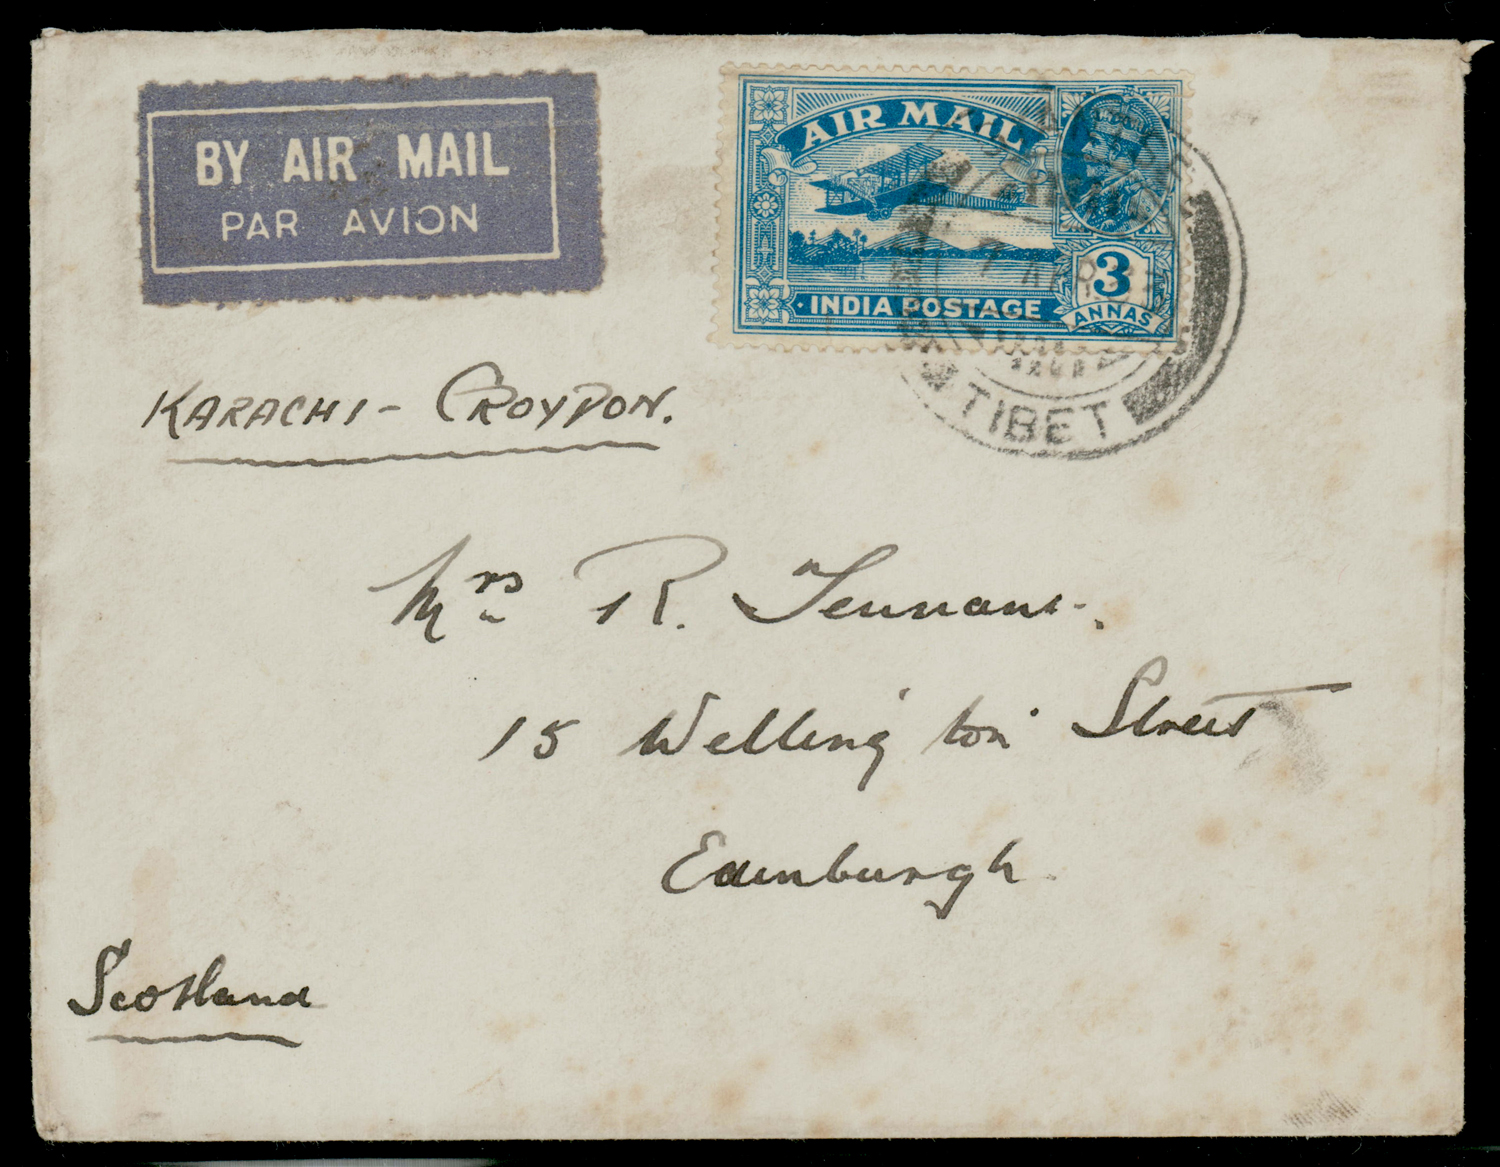 BY AIR MAIL
PAR AVION
AIR MAIL
3
INDIA POSTAGE
ANNAS
7 APR
TIBET
KARACHI - CROYDON.
Mrs R. Tennant.
15 Wellington Street
Edinburgh
Scotland